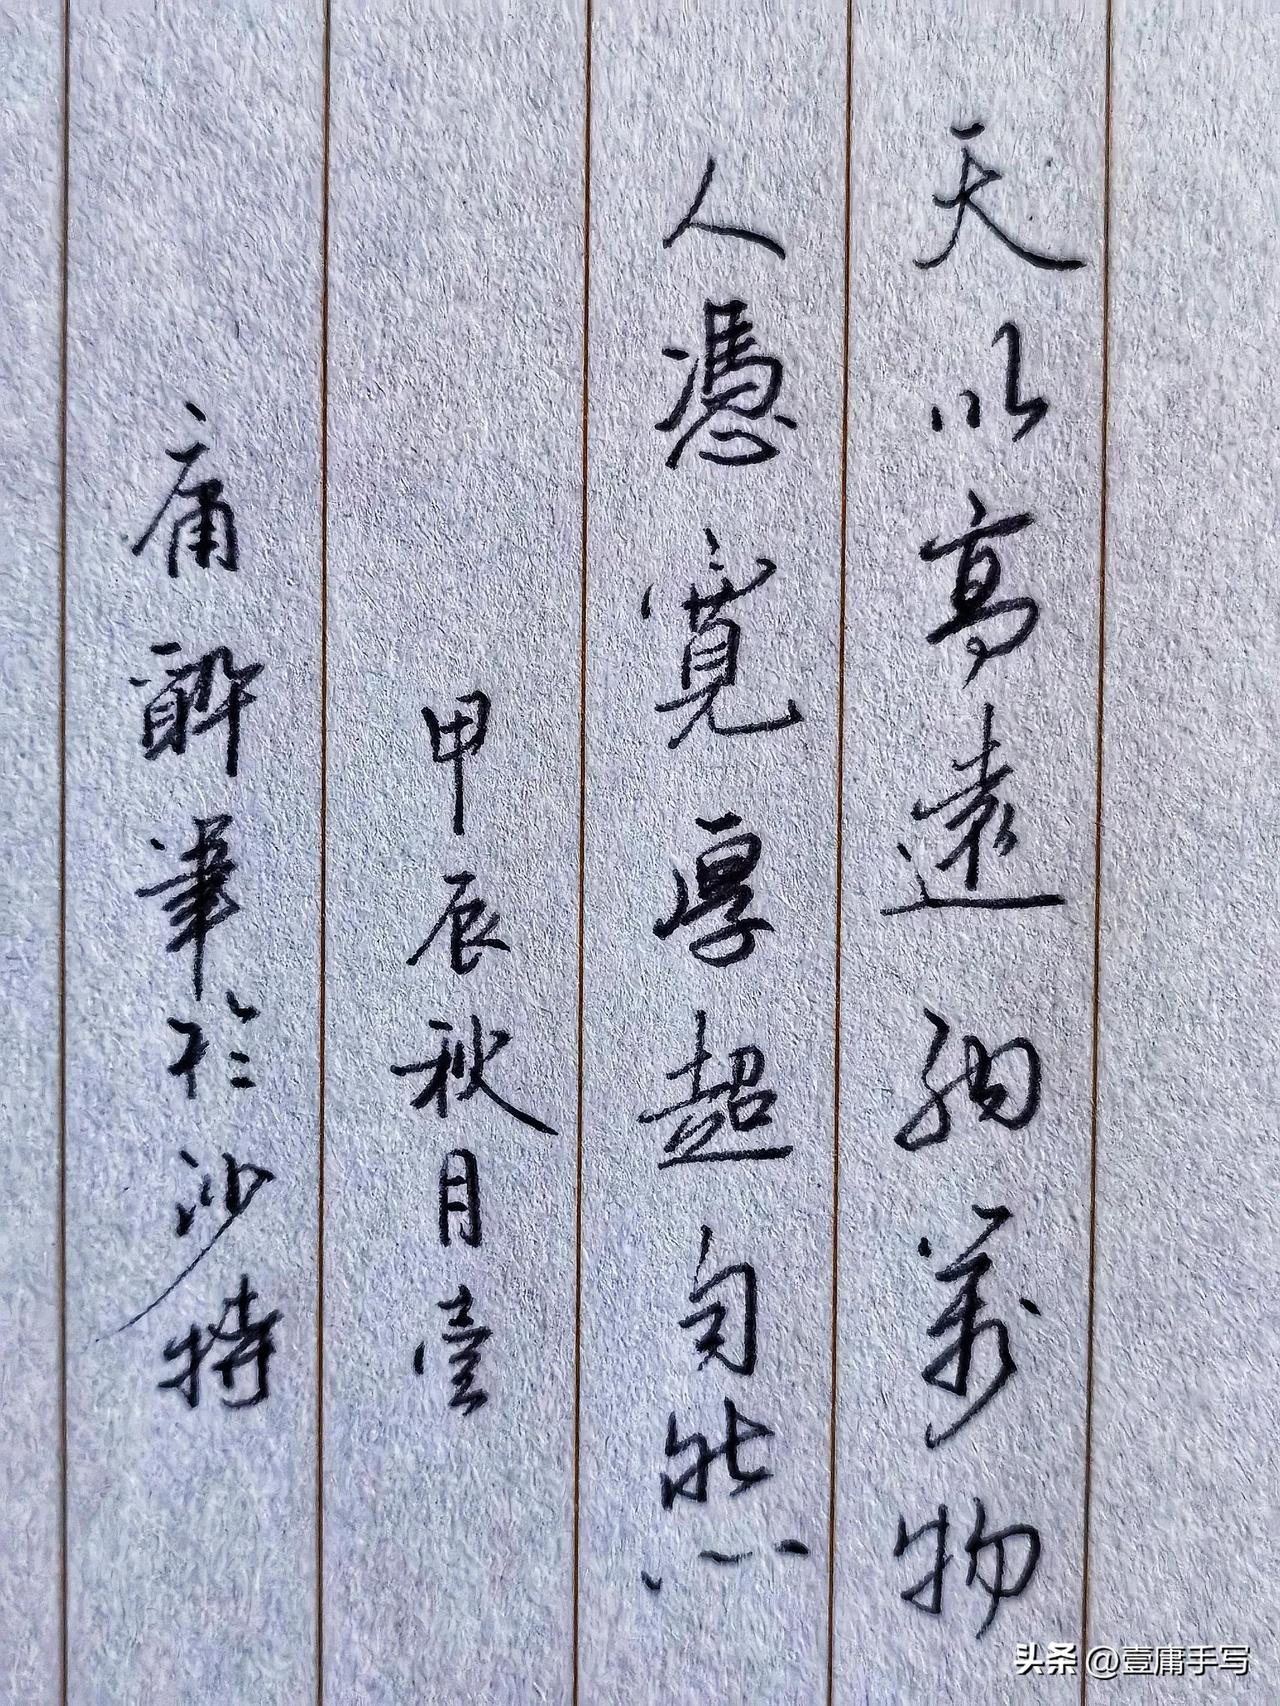 天以高遠納萬物
人憑寬厚超自然
甲辰秋月壹
庸酔筆於沙特
头条 @壹庸手写